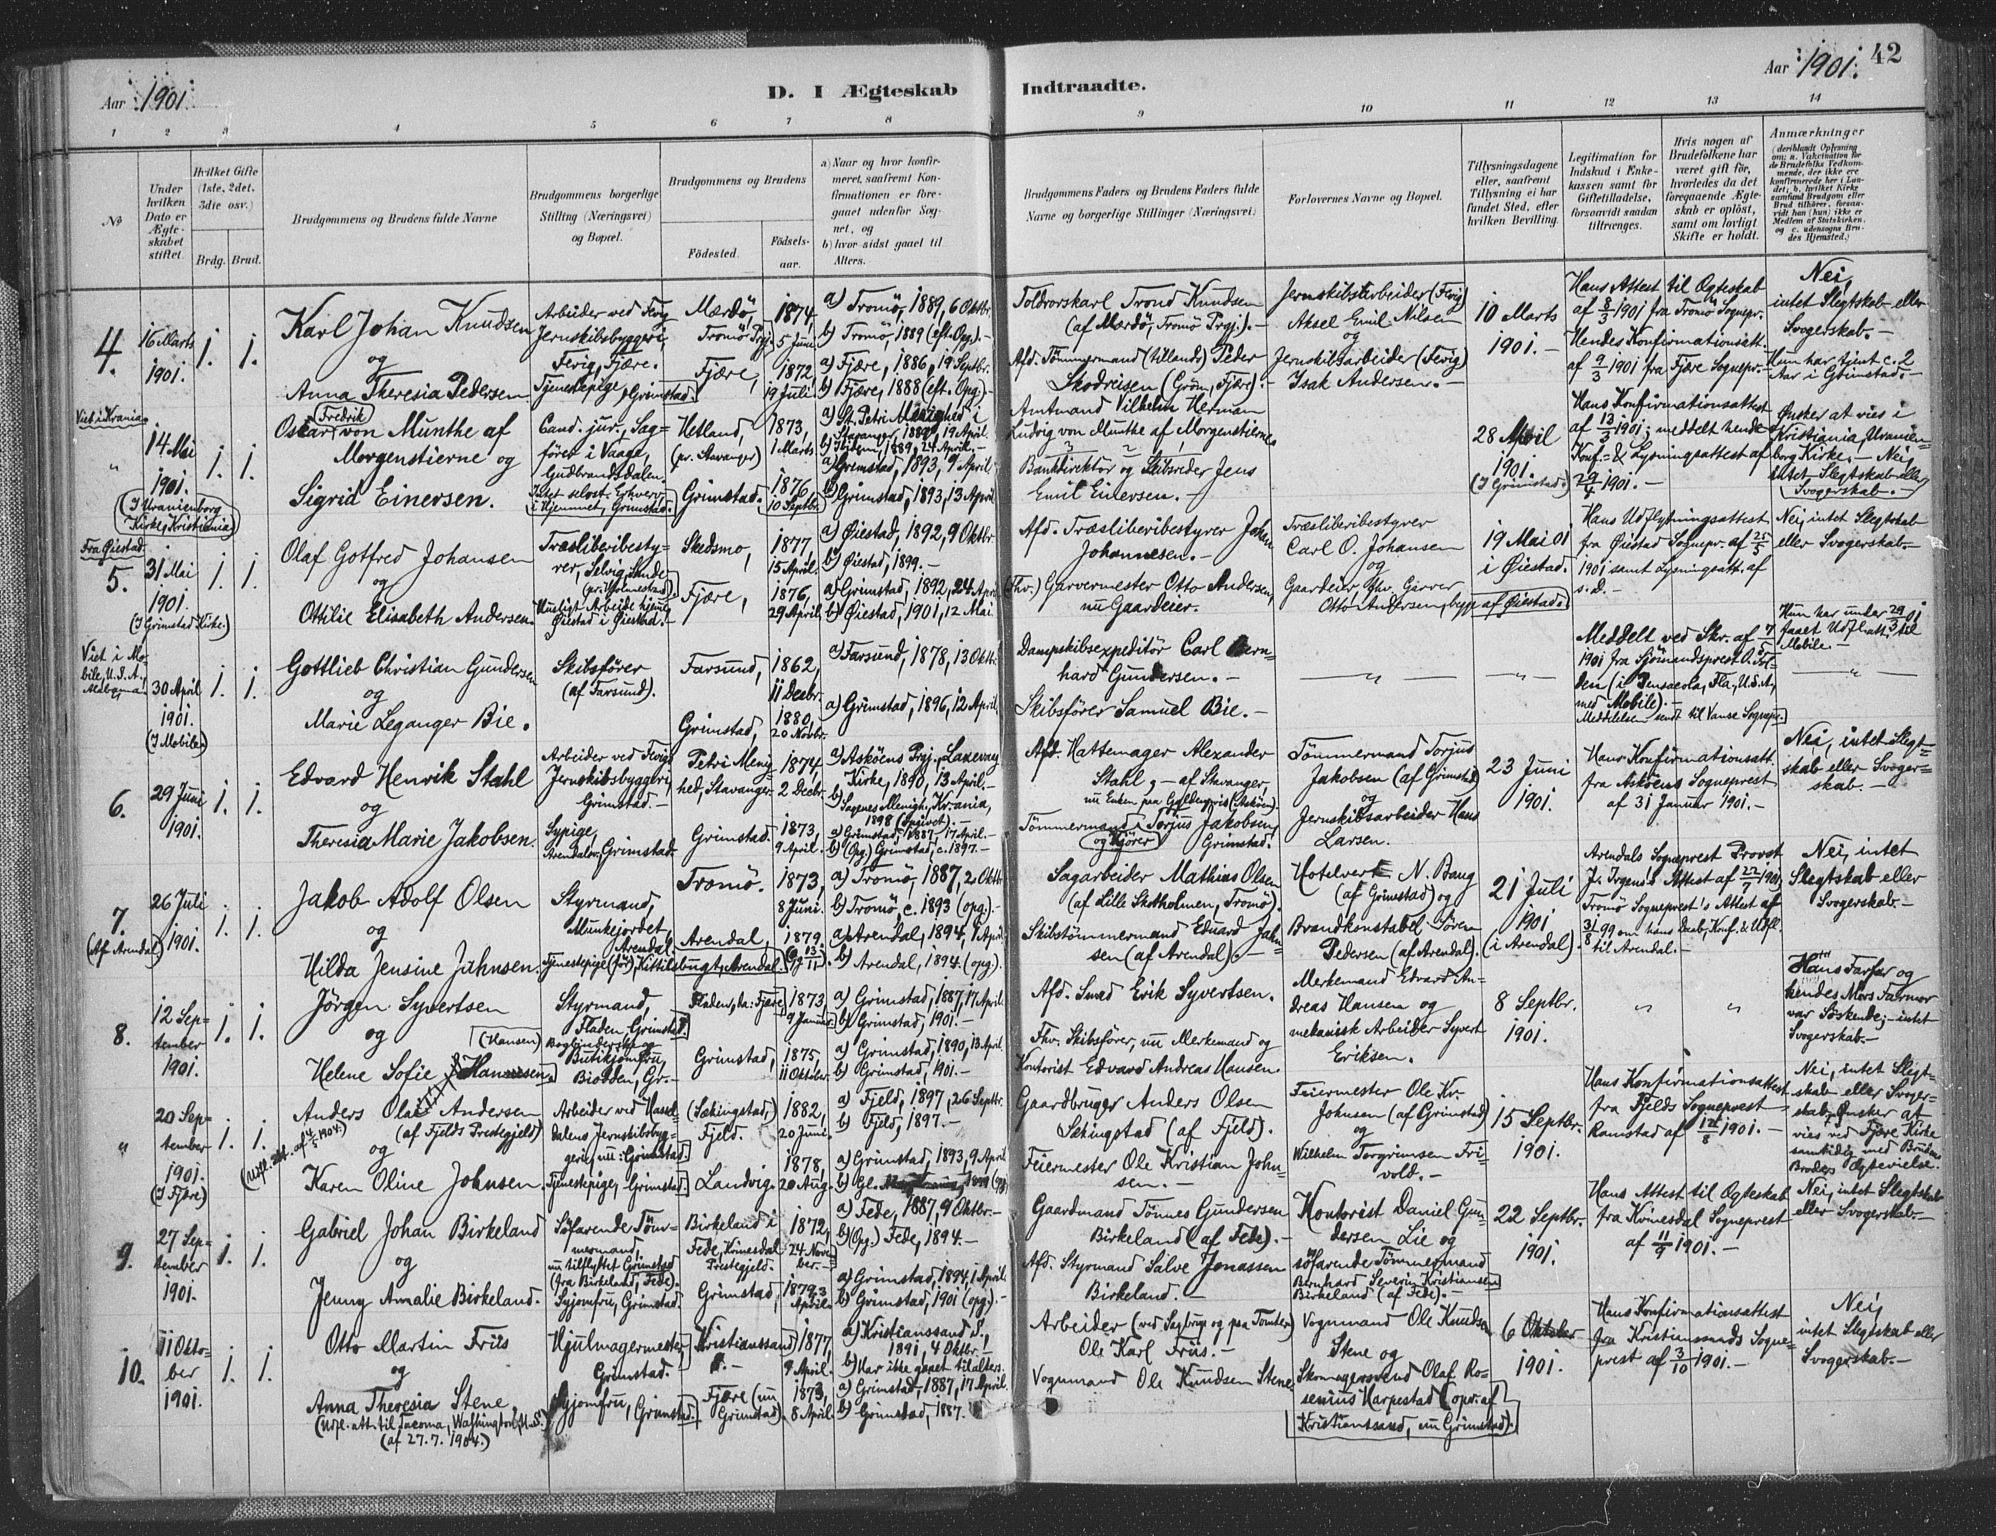 Aar 1901.
D. I Ægteskab
Indtraadte.
Aar 1901.
42
1 2 3 4 5 6 7 8 9 10 11 12 13 14
No
Under hvilken Dato er Ægteskabet stiftet.
Hvilket Gifte (1ste, 2det, 3die osv.)
Brdg. Brud.
Brudgommens og Brudens fulde Navne
Brudgommens borgerlige Stilling (Næringsvei) og Bopæl.
Brudgommens og Brudens
Födested.
Födselsaar.
a) Naar og hvor konfirmeret, saafremt Konfirmationen er foregaaet udenfor Sognet, og
b) hvor sidst gaaet til Alters.
Brudgommens Faders og Brudens Faders fulde Navne og borgerlige Stillinger (Næringsvei)
Forlovernes Navne og Bopæl.
Tillysningsdagene eller, saafremt Tillysning ei har fundet Sted, efter hvilken Bevilling.
Legitimation for Indskud i Enkekassen samt for Giftetilladelse, forsaavidt saadan tiltrænges.
Hvis nogen af Brudefolkene har været gift før, hvorledes da det foregaaende Ægteskab er opløst, samt om lovligt Skifte er holdt.
Anmærkninger
(deriblandt Oplysning om: a. Vaksination for de Brudefolks Vedkommende, der ikke ere konfirmerede her i Landet; b. hvilket Kirkesamfund Brudgom eller Brud tilhører, forsaavidt han (hun) ikke er Medlem af Statskirken og c. udensogns Brudes Hjemsted.)
4.
16 Marts 1901.
1. 1.
Karl Johan Knudsen
og
Anna Theresia Pedersen
Arbeider ved Fevig Jernskibsbyggeri, Fevig, Fjære.
Tjenestepige, Grimstad.
Mærdö, Tromö Prgj.
Fjære,
1874, 5 Juni.
1872, 19 Juli.
a) Tromö, 1889, 6 Oktbr.
b) Tromö, 1889 (eft. Opg.).-
a) Fjære, 1886, 19 Septbr.
b) Fjære, 1888 (eft. Opg.).-
Toldrorskarl Trond Knudsen
(af Mærdö, Tromö Prgj.).-
Afd. Tömmermand (tillands) Peder
Skodreisen (Grøm, Fjære).-
Jernskibsarbeider (Fevig)
Aksel Emil Nilsen
og
Jernskibsarbeider (Fevig)
Isak Andersen.-
10 Marts 1901.-
Hans Attest til Ægteskab
af 8/3 1901 fra Tromö Sognepr.
Hendes Konfirmationsatt.
af 9/3 1901 fra Fjære Sognepr.-
Nei, intet Slegtskab eller Svogerskab.-
Hun har tjent c. 2 Aar i Grimstad.-
Viet i Krania.
"
14 Mai 1901.
(I Uranienborg Kirke, Kristiania)
1. 1.
Oskar Fredrik von Munthe af
Morgenstierne og
Sigrid Einersen.
Cand. jur., Sagfører i Vaage, Gudbrandsdalen.
Intet selvst. Erhverv, i Hjemmet, Grimstad.
Hetland, (pr. Stavanger)
Grimstad.
1873, 1 Marts
1876, 10 Septbr.
a) St. Petri Menighed i Stavanger, 1889, 19 April.
b) Ibidem, 1889, 24 April.-
a) Grimstad, 1893, 9 April
b) Grimstad, 1893, 13 April
Amtmand Vilhelm Herman
Ludvig von Munthe af Morgenstierne
Bankdirektör og Skibsreder Jens
Emil Einersen.-
28 April 1901.
(I Grimstad.)
Hans Konfirmationsattest
af 13/3 1901; meddelt hende
Konf.= & Lysningsattest af
29/4 1901.-
Önsker at vies i Kristiania Uranienborg Kirke.- Nei, intet Slegtskab eller Svogerskab.-
Fra Øiestad.
5.
31 Mai 1901.
(I Grimstad Kirke.)
1. 1.
Olaf Gotfred Johansen
og
Ottilie Elisabeth Andersen.
Træsliberibestyrer, Selvig, Sande (pr. Holmestrand)
Husligt Arbeide hjem, Øiestad i Øiestad.-
Skedsmo,
Fjære,
1877, 15 April.
1876, 29 April.
a) Øiestad, 1892, 9 Oktbr
b) Øiestad, 1899.-
a) Grimstad, 1892, 24 April
b) Øiestad, 1901, 12 Mai
Afd. Træsliberibestyrer Johan
Johannesen.-
(Fhv.) Garvermester Otto Andersen,
nu Gaardeier.
Træsliberibestyrer
Carl O. Johansen
og
Gaardeier, fhv. Garver
Otto Andersen, begge af Øiestad.
19 Mai 01
i Øiestad.
Hans Udflytningsattest
fra Øiestad Sognepr. af 25/5
1901 samt Lysningsatt. af
s.d.-
Nei, intet Slegtskab
eller Svogerskab.-
Viet i Mobile, U.S.A., Alabama.
30 April 1901.
(I Mobile.)
1. 1.
Gottlieb Christian Gundersen
og
Marie Leganger Bie.
Skibsfører
(af Farsund).
Farsund,
Grimstad,
1862, 11 Decbr.
1880, 20 Novbr.
a) Farsund, 1878, 13 Oktbr.
a) Grimstad, 1896, 12 April.
Dampskibsexpeditör Carl Bernhard Gundersen.-
Skibsfører Samuel Bie.-
— " —
— " —
Meddelt ved Skr. af 7/
1901 fra Sjömandsprest O. Tri-
den (i Pensacola, Fla., U.S.A.,
med Mobile).-
Meddelelse sendt til Vanse Sognepr.
Hun har under 29/3 01 faaet Udflatt. til Mobile.-
— " —
6.
29 Juni 1901.
1. 1.
Edvard Henrik Stahl
og
Theresia Marie Jakobsen.
Arbeider ved Fevigs Jernskibsbyggeri, Grimstad.-
Sypige, Arendalsv. Grimstad.
Petri Menighed, Stavanger
Grimstad.
1874, 2 Decbr.
1873, 9 April.
a) Asköens Prgj., Laxevaag Kirke, 1890, 13 April.-
b) Sagenes Menigh., Krania, 1898 (opgivet).-
a) Grimstad, 1887, 17 April.-
b) (Opg.) Grimstad, c. 1897.-
Afd. Hattemager Alexander
Stahl,- af Stavanger,
nu Enken paa Gyldenpris (Asköen).
Tömmermand Torjus Jakobsen,
og Kjører Grimstad.
Tömmermand Torjus
Jakobsen (af Grimstad)
og
Jernskibsarbeider Hans
Larsen.
23 Juni 1901.
Hans Konfirmationsatt.
fra Asköens Sogneprest
af 31 Januar 1901.-
Nei, intet Slegtskab eller Svogerskab.-
7.
(Af Arendal.)
26 Juli 1901.
1. 1.
Jakob Adolf Olsen
og
Hilda Jensine Johnsen.
Styrmand, Munkejordet, Arendal
Tjenestepige (för), Kittilsbugt, Arendal.
Tromö.
Arendal,
1873, 8 Juni.
1879.
a) Tromö, 1887, 2 Oktbr
b) Tromö, c. 1893 (opg.).-
a) Arendal, 1894, 1 April
b) Arendal, 1894. (opg.).
Sagarbeider Mathias Olsen
(af Lille Skotholmen, Tromö).
Skibstömmermand Eduard Johnsen (af Arendal).-
Hotelvert N. Bang
(af Grimstad) og
Brandkonstabel Sören
Pedersen (af Arendal).
21 Juli 1901
(i Arendal)
Arendals Sogneprest Provst
Jr. Irgens's Attest af 22/7 1901
Tromö Sogneprest's Attest af
31/8 99 om hans Daab, Konf. & Udfl.
til Arendal.-
Nei, intet Slegtskab eller Svogerskab.-
8.
12 September 1901.
1. 1.
Jørgen Syvertsen
og
(Hansen)
Helene Sofie
Styrmand, Fladen, Grimstad.
Bogbinderske og Butikjomfru, Biodden, Gr.-
Fladen, da: Fjære
Grimstad,
1873, 9 Januar.
1875, 11 Oktober.
a) Grimstad, 1887, 17 April
b) Grimstad, 1901.-
a) Grimstad, 1890, 13 April
b) Grimstad, 1901.-
Afd. Smed Erik Syvertsen.
Fhv. Skibsfører, nu Merkemand og
Kontorist Edvard Andreas Hansen.
Merkemand Edvard Andreas Hansen og
mekanisk Arbeider Syvert
Eriksen.
8 Septbr. 1901.
" "
Hans Farfar og hendes Mors Farmor var Söskende;- intet Svogerskab.-
"
20 September 1901.
(I Fjære)
1. 1.
Anders Olai Andersen
(af Fjelds Prestegjeld)
og
Karen Oline Johnsen.
(Utfl. att. af 4/5 1904.)
Arbeider ved Hasseldalens Jernskibsbyggeri, nu: Grimstad.
Tjenestepige, Grimstad
(Sækingstad,) Fjeld.
Landvig.
1882, 20 Juni.
1878, 20 Aug.
a) Fjeld, 1897, 26 Septbr.
b) Fjeld, 1897.-
a) Grimstad, 1893, 9 April
Gaardbruger Anders Olsen
Sækingstad (af Fjeld).
Feiermester Ole Kristian Johnsen.-
Feiermester Ole Kr.
Johnsen (af Grimstad)
og
Wilhelm Torgrimsen Frivold.-
15 Septbr. 1901.
Hans Konfirmationsattest
fra Fjelds Sogneprest
Ramstad af 1901.-
Nei, intet Slegtskab eller Svogerskab. Önsker at vies ved Fjære Kirke samtidig med Brudens Broders Ægtevielse.
9.
27 September 1901.
1. 1.
Gabriel Johan Birkeland
og
Jenny Amalie Birkeland.
Söfarende Tömmermand, nu tilflyttet Grimstad (fra Birkeland, Fede).
Syjomfru, Grimstad.
Birkeland i Fede, Kvinesdal Prestegjeld.
Grimstad,
1872, 24 November.-
1879, 3 April.
a) Fede, 1887, 9 Oktbr.-
b) (Opg.) Fede, 1894.-
a) Grimstad, 1894, 1 April
b) Grimstad, 1901 (opg.).-
Gaardmand Tönnes Gundersen
Birkeland (af Fede).-
Afd. Styrmand Salve Jonassen
Birkeland.-
Kontorist Daniel Gundersen Lie og
söfarende Tömmermand
Bernhard Severin Kristiansen
Birkeland (af Fede).-
22 Septbr. 1901.
Hans Attest til Ægteskab
fra Kvinesdal Sogneprest
af 11/9 1901.-
Nei, intet Slegtskab eller Svogerskab.-
10.
11 Oktober 1901
1. 1.
Otto Martin Friis
og
Anna Theresia Stene,
(Utfl.-att. til Tacoma, Washington, U.S.)
(af 27.7.1904.)
Hjulmagermester, Grimstad.
Syjomfru, Grimstad.
Kristianssand
Fjære (nu Grimstad)
1877, 9 April.
1873, 8 April.
a) Kristianssand S., 1891, 4 Oktbr.-
b) Har ikke gaaet til alters.
a) Grimstad, 1887, 17 April.
b) Grimstad, 1887.-
Arbeider (ved Sagbrug og paa Tomter)
Ole Karl Friis.-
Vognmand Ole Knudsen Stene.
Vognmand Ole Knudsen
Stene og
Skomagersvend Olaf Rosenius Harpestad (opr. af
Kristianssand, nu Grimstad).
6 Oktober 1901.
Hans Konfirmationsattest
fra Kristianssands Sogneprest af 3/10 1901.-
Nei, intet Slegtskab eller Svogerskab.-